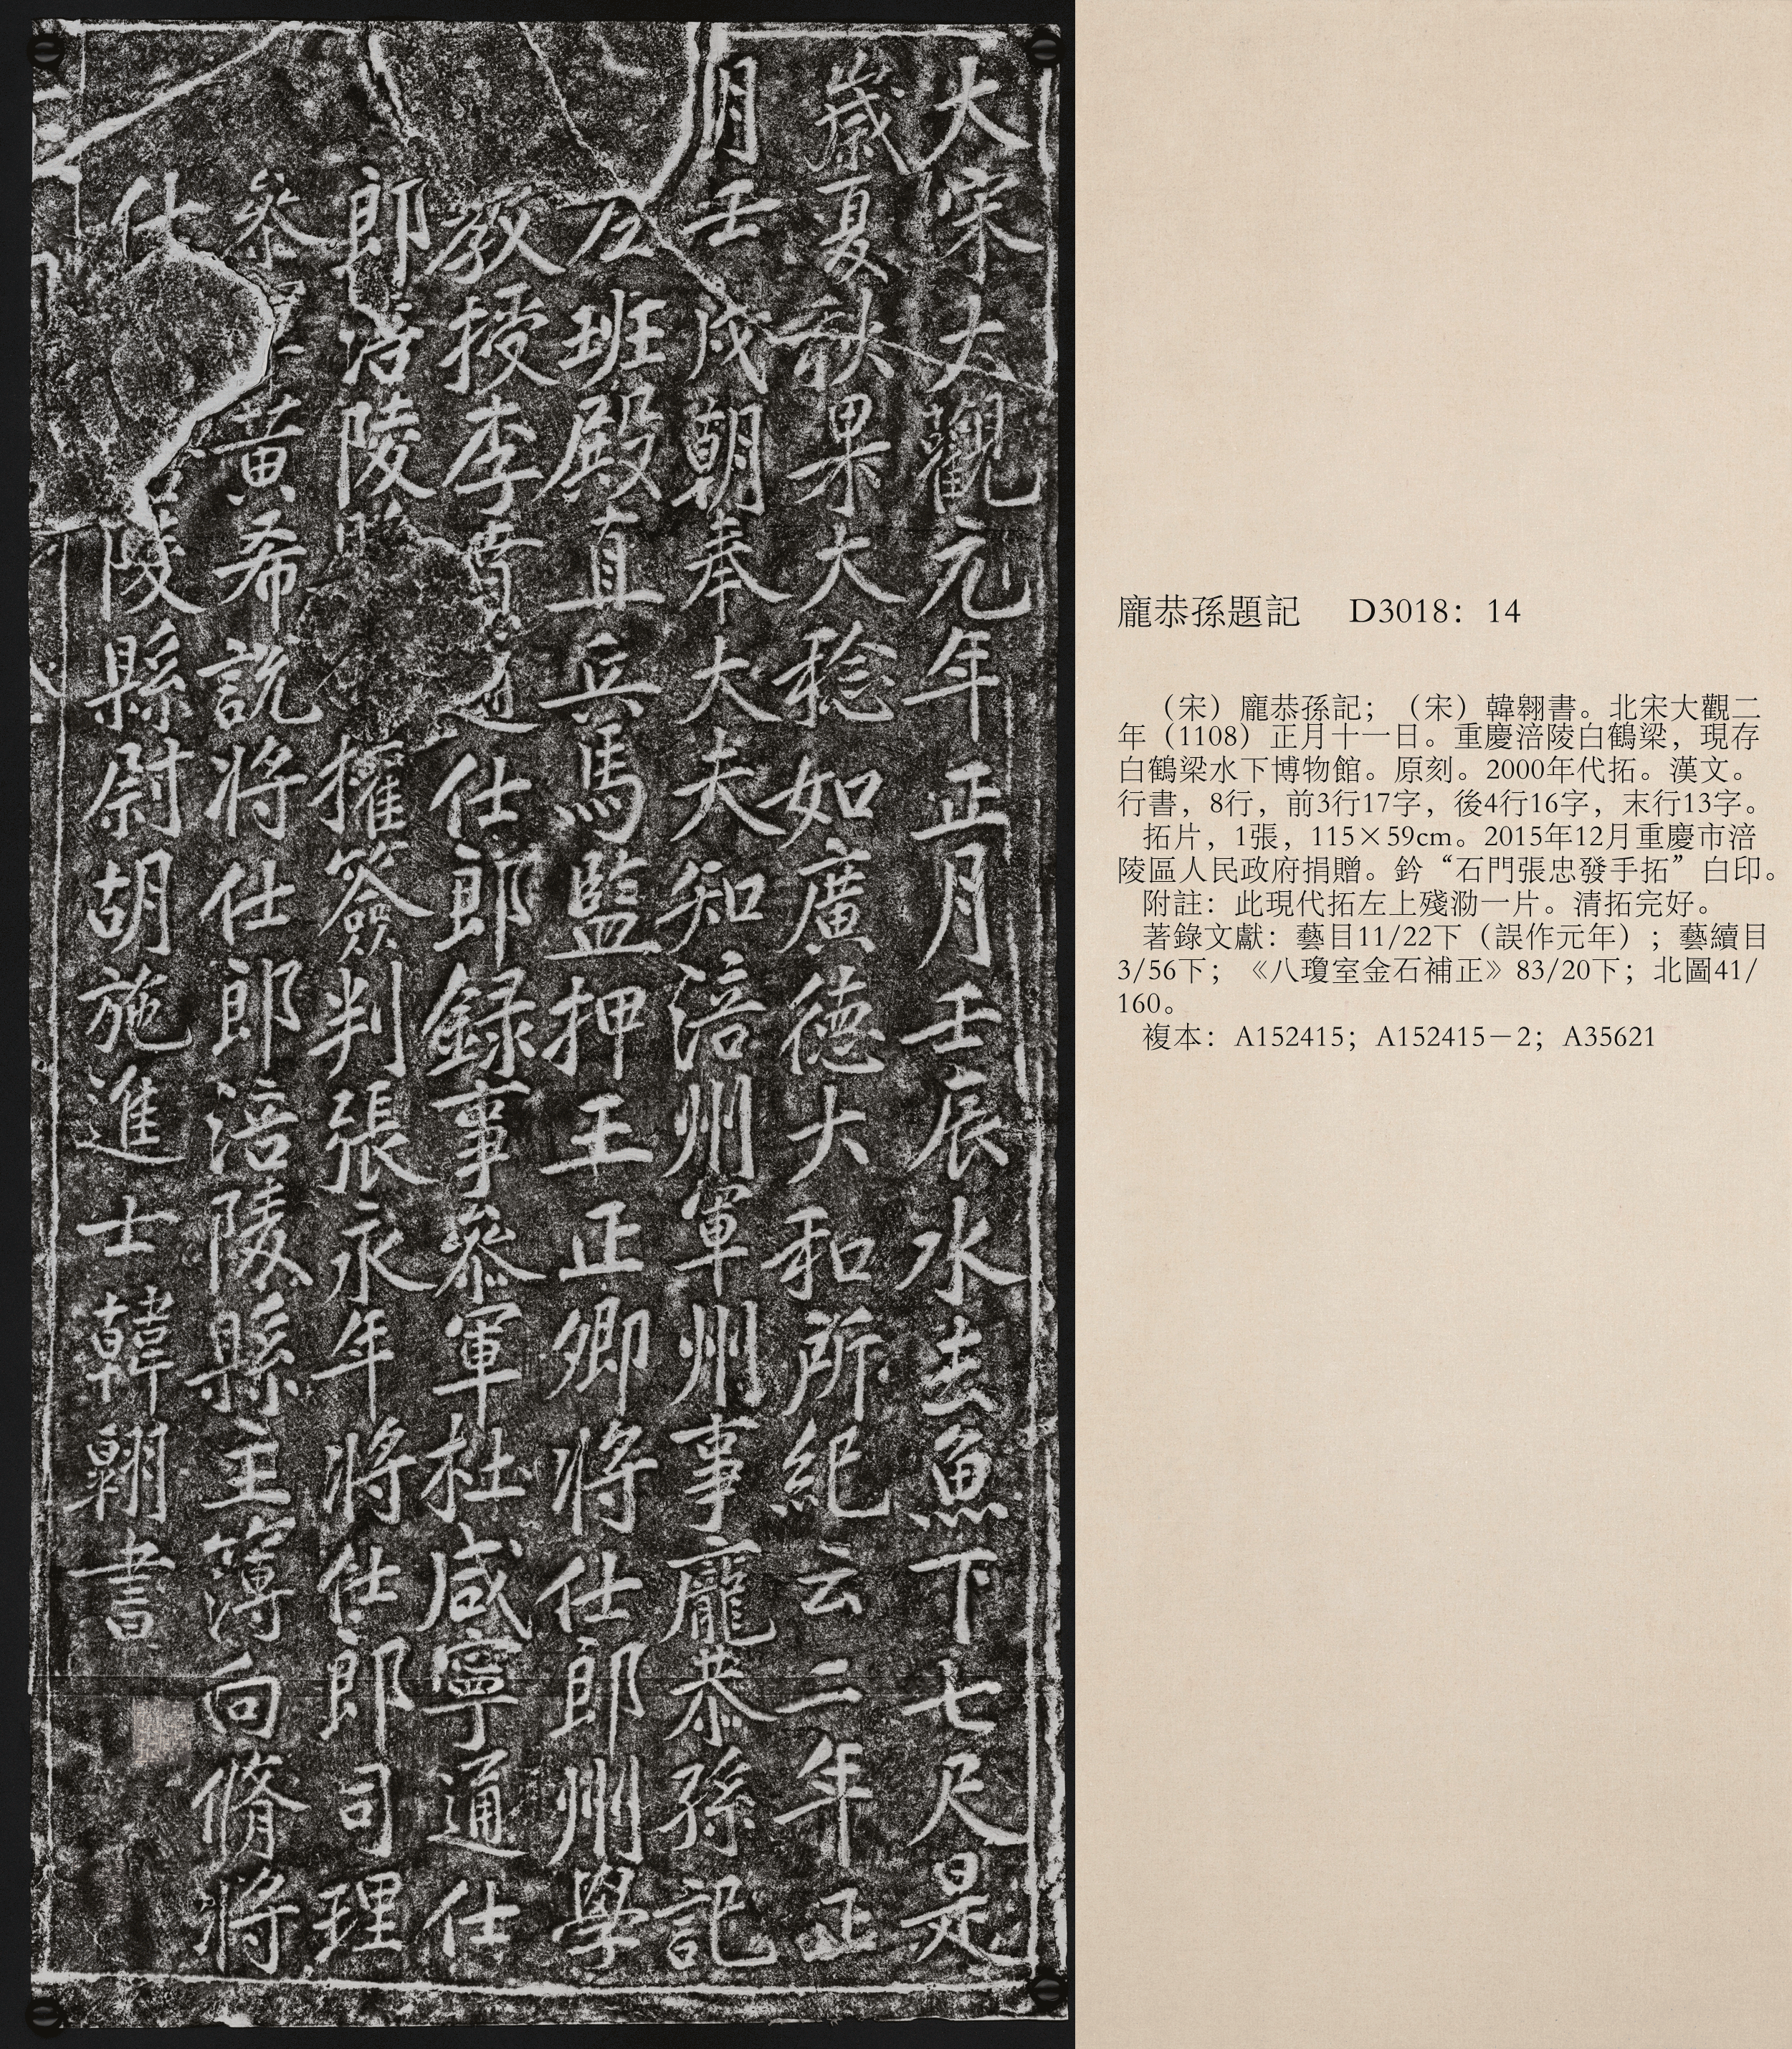 大宋大觀元年正月壬辰水去魚下七尺是
歲夏秋果大稔如廣德大和所紀云二年正
月壬戌朝奉大夫知涪州軍州事龐恭孫記
左班殿直兵馬監押王正卿將仕郎州學
教授李賁通仕郎録事參軍杜咸寧通仕
郎涪陵權簽判張永年將仕郎司理
參黃希說將仕郎涪陵縣主簿向脩將
仕陵縣尉胡施進士韓翱書
龐恭孫題記 D3018：14
（宋）龐恭孫記；（宋）韓翱書。北宋大觀二
年（1108）正月十一日。重慶涪陵白鶴梁，現存
白鶴梁水下博物館。原刻。2000年代拓。漢文。
行書，8行，前3行17字，後4行16字，末行13字。
拓片，1張，115×59cm。2015年12月重慶市涪
陵區人民政府捐贈。鈐“石門張忠發手拓”白印。
附註：此現代拓左上殘泐一片。清拓完好。
著錄文獻：藝目11/22下（誤作元年）；藝續目
3/56下；《八瓊室金石補正》83/20下；北圖41/
160。
複本：A152415；A152415－2；A35621